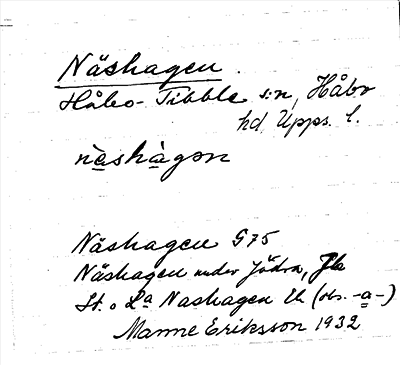 Näshagen.
Håbo-Tibble s:n, Håbo
hd Upps. l.
nàshàgən
Näshagen G75
Näshagen under Jädra, Jb
St. o La Nashagen Ek (obs. -a-)
Manne Eriksson 1932